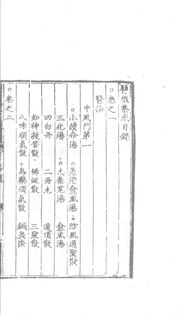 醫家集成目錄
○卷之一
醫治
中風門第一
○小續命湯 ○羌活愈風湯 ○防風通聖散
三化湯 ○大秦艽湯
四白丹 二丹丸 愈風湯
如神救苦散 稀涎散 通頂散
八味順氣散 ○烏藥順氣散 三聖散
○卷之二